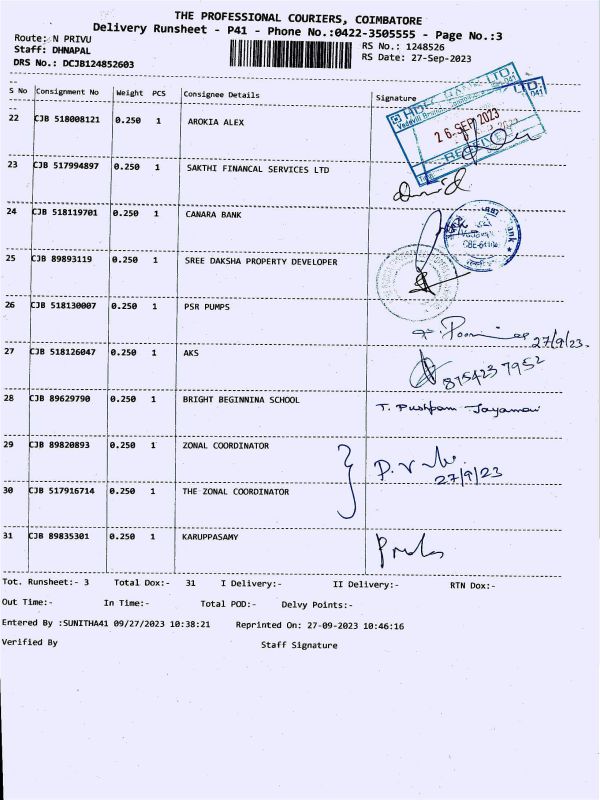 THE PROFESSIONAL COURIERS, COIMBATORE
Delivery Runsheet - P41 - Phone No.:0422-3505555 - Page No.:3
Route: N PRIVU
RS No.: 1248526
Staff: DHNAPAL
RS Date: 27-Sep-2023
DRS No.: DCJB124852603
S No Consignment No Weight PCS Consignee Details Signature
HDFC BANK LTD.
26 SEP 2023
RECEIVED
22 CJB 518008121 0.250 1 AROKIA ALEX
23 CJB 517994897 0.250 1 SAKTHI FINANCAL SERVICES LTD
24 CJB 518119701 0.250 1 CANARA BANK
25 CJB 89893119 0.250 1 SREE DAKSHA PROPERTY DEVELOPER
26 CJB 518130007 0.250 1 PSR PUMPS
27/9/23.
27 CJB 518126047 0.250 1 AKS
8754237952
28 CJB 89629790 0.250 1 BRIGHT BEGINNINA SCHOOL T. Pushpam Jayamani
29 CJB 89820893 0.250 1 ZONAL COORDINATOR
27/9/23
30 CJB 517916714 0.250 1 THE ZONAL COORDINATOR
31 CJB 89835301 0.250 1 KARUPPASAMY
Tot. Runsheet:- 3 Total Dox:- 31 I Delivery:- II Delivery:- RTN Dox:-
Out Time:- In Time:- Total POD:- Delvy Points:-
Entered By :SUNITHA41 09/27/2023 10:38:21 Reprinted On: 27-09-2023 10:46:16
Verified By Staff Signature